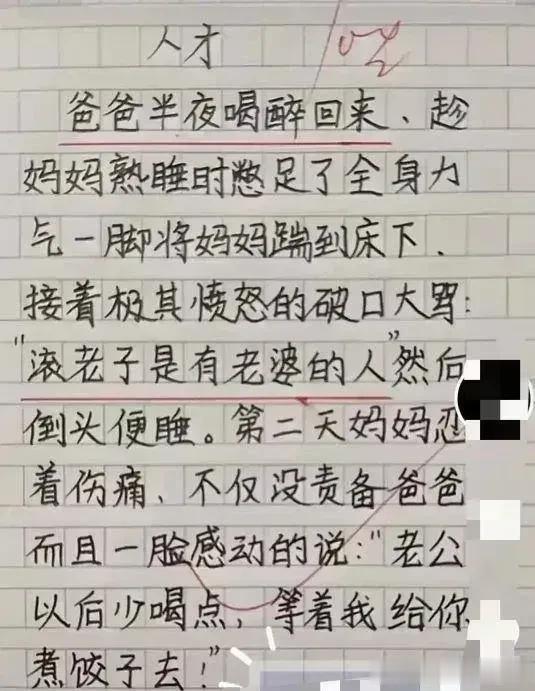 人才
爸爸半夜喝醉回来、趁
妈妈熟睡时憋足了全身力
气一脚将妈妈踹到床下.
接着极其愤怒的破口大骂:
"滚老子是有老婆的人"然后
倒头便睡。第二天妈妈忍
着伤痛、不仅没责备爸爸
而且一脸感动的说:"老公
以后少喝点,等着我给你
煮饺子去!"